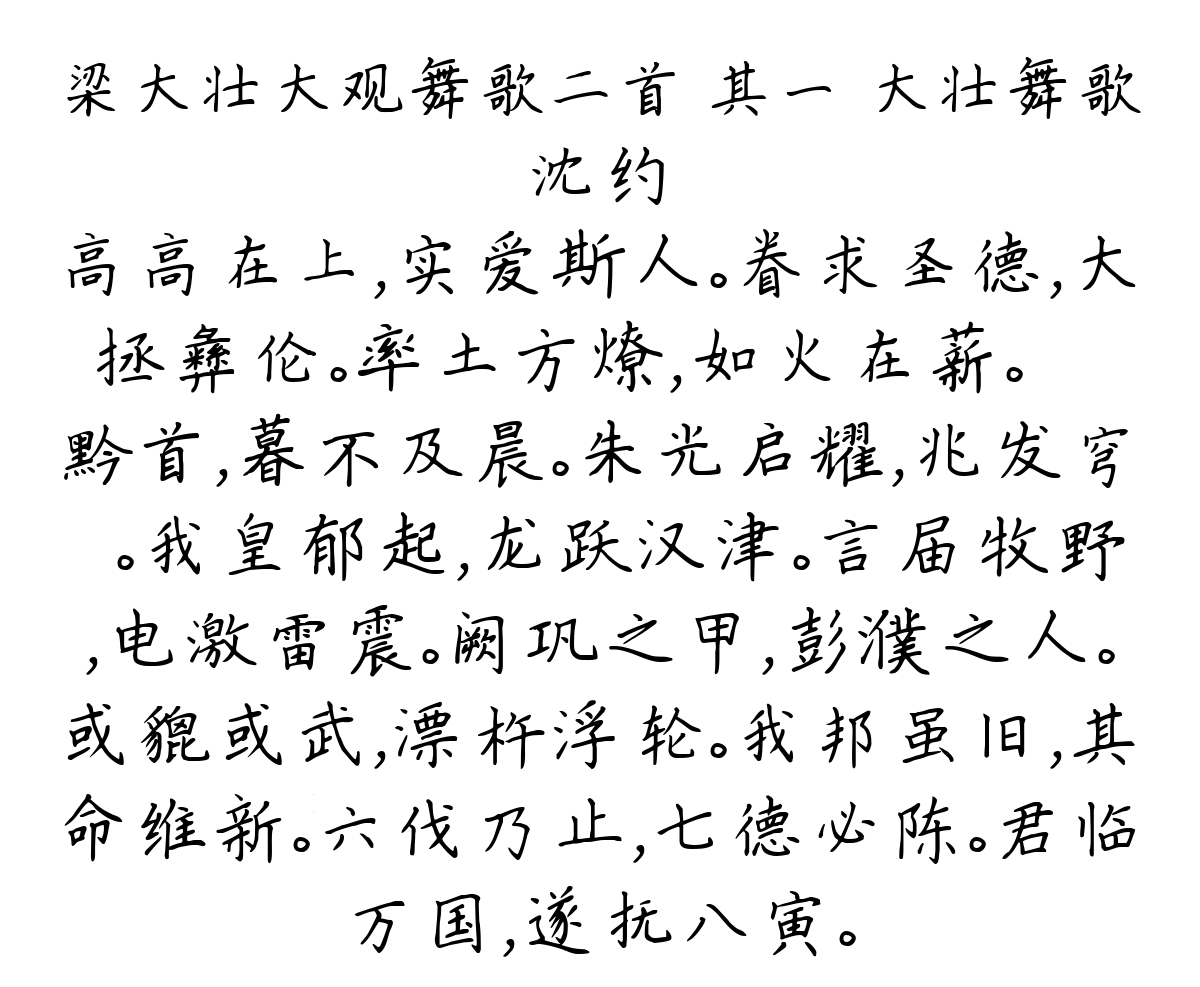 梁大壮大观舞歌二首 其一 大壮舞歌
沈约
高高在上,实爱斯人。眷求圣德,大
拯彝伦。率土方燎,如火在薪。
黔首,暮不及晨。朱光启耀,兆发穹
。我皇郁起,龙跃汉津。言届牧野
,电激雷震。阙巩之甲,彭濮之人。
或貔或武,漂杵浮轮。我邦虽旧,其
命维新。六伐乃止,七德必陈。君临
万国,遂抚八寅。